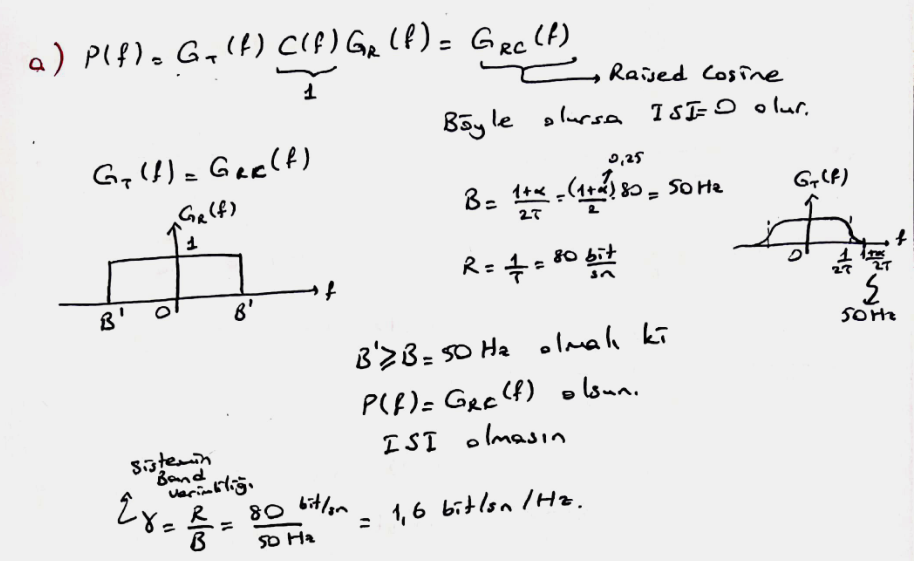 a) P(f) = G_T(f) C(f) G_R(f) = G_RC(f)
1
→ Raised Cosine
Böyle olursa ISI=0 olur.
G_T(f) = G_RC(f)
G_R(f)
1
B' 0 B' f
0,25
B = (1+α)/2T = (1+α)/2 · 80 = 50 Hz
R = 1/T = 80 bit/sn
G_T(f)
0 1/2T (1+α)/2T f
50 Hz
B' ≥ B = 50 Hz olmalı ki
P(f) = G_RC(f) olsun.
ISI olmasın
Sistemin
Band
verimliliği
γ = R/B = 80 bit/sn / 50 Hz = 1,6 bit/sn/Hz.